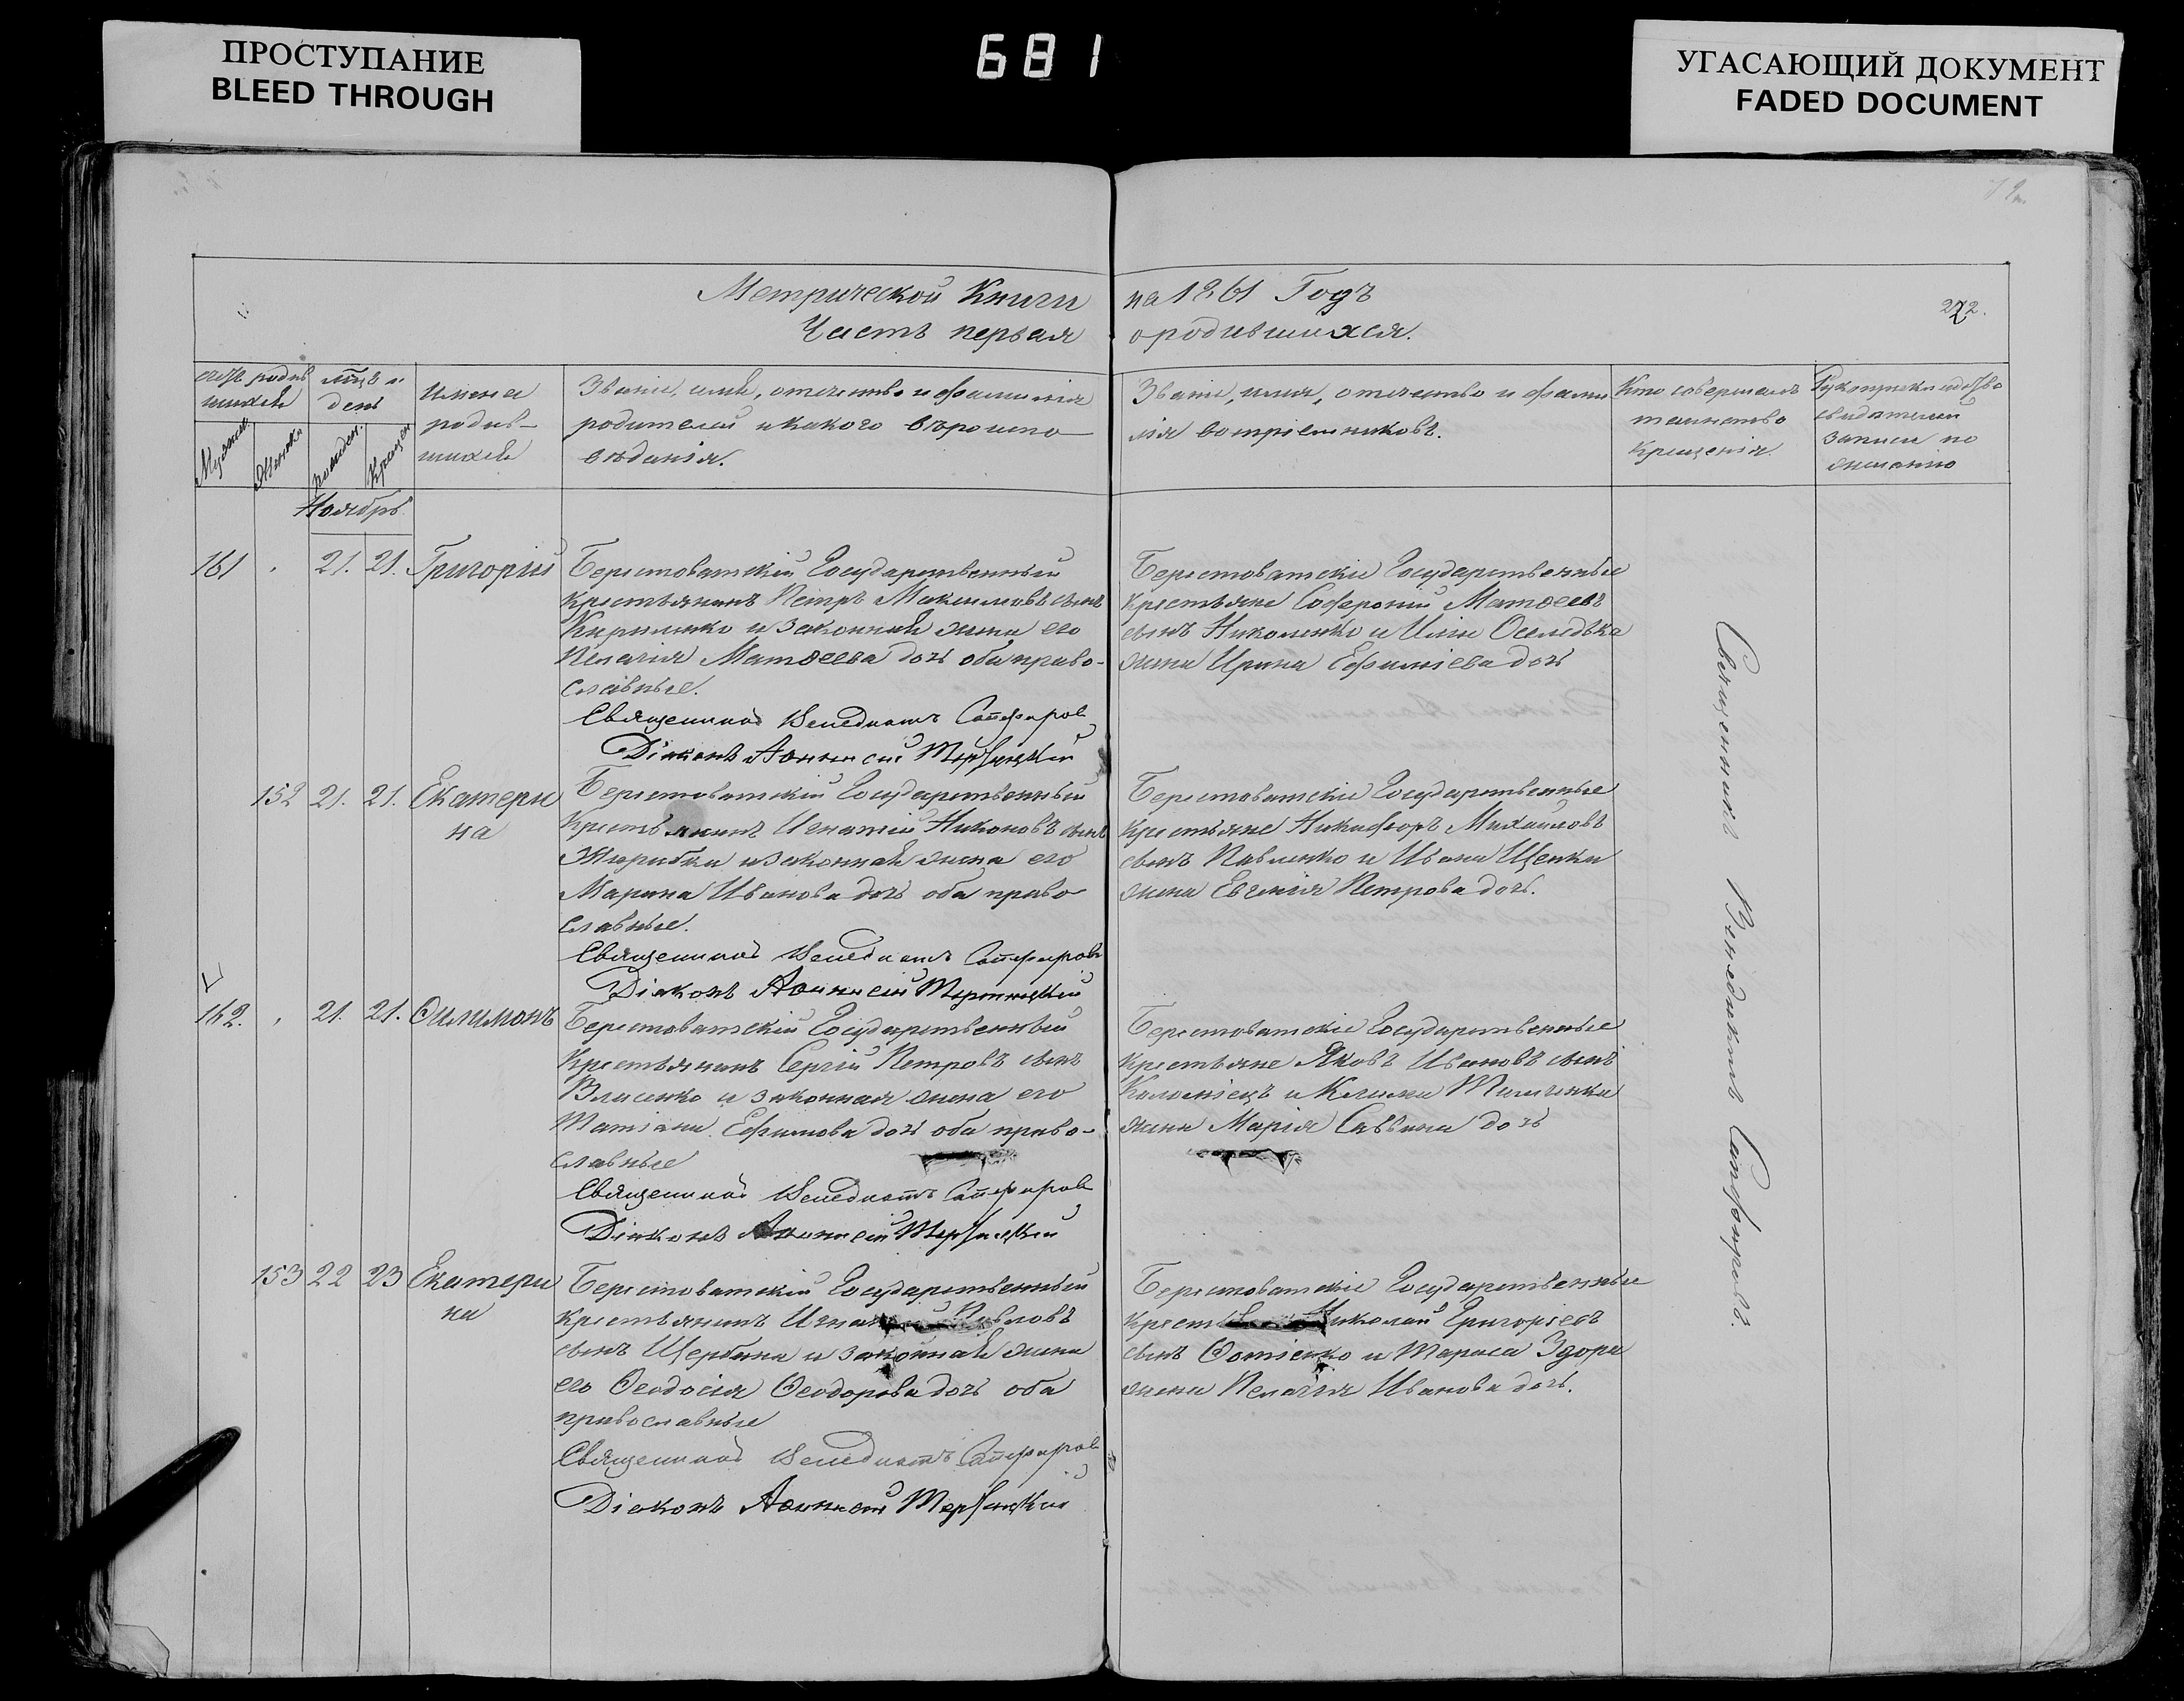 ПРОСТУПАНИЕ
BLEED THROUGH
681
УГАСАЮЩИЙ ДОКУМЕНТ
FADED DOCUMENT
Метрической Книги на 1861 Годъ
272.
Часть первая о родившихся.
Имена
родив-
шихся
Званіе, имя, отечество и фамилія
родителей и какого вѣроиспо
вѣданія.
Званіе, имя, отечество и фами
лія воспріемниковъ.
Кто совершалъ
таинство
Крещенія
свидѣтелей
записи по
желанію
Ноябрь
161 21. 21. Григорій
Берестоватскій Государственный
крестьянинъ Петръ Максимовъ сынъ
Кириленко и законная жена его
Пелагія Матѳеева дочь оба право-
славные.
Священникъ Венедиктъ Сапфировъ
Діаконъ
Берестоватскіе Государственные
крестьяне Софроній Матѳеевъ
сынъ Николенко и Ильи Оселедька
жена Ирина Ефиміева дочь
152 21. 21. Екатери
на
Берестоватскій Государственный
крестьянинъ Игнатій Никоновъ сынъ
и законная жена его
Марина Иванова дочь оба право
славные.
Священникъ Венедиктъ Сапфировъ
Діаконъ
Берестоватскіе Государственные
крестьяне Никифоръ Михайловъ
сынъ Павленко и Ивана
жена Евгенія Петрова дочь.
162. 21. 21. Филимонъ
Берестоватскій Государственный
крестьянинъ Сергій Петровъ сынъ
Власенко и законная жена его
Татіана Ефимова дочь оба право-
славные
Священникъ Венедиктъ Сапфировъ
Діаконъ
Берестоватскіе Государственные
крестьяне Яковъ Ивановъ сынъ
Коломіецъ и Климы
жена Марія Саввина дочь
153 22 23 Екатери
на
Берестоватскій Государственный
крестьянинъ Игнатій Павловъ
сынъ Щербина и законная жена
его Ѳеодосія Ѳеодорова дочь оба
православные
Священникъ Венедиктъ Сапфировъ
Діаконъ
Берестоватскіе Государственные
Николай Григоріевъ
сынъ Ѳотіенко и Тараса
жена Пелагія Иванова дочь.
Священникъ Венедиктъ Сапфировъ.